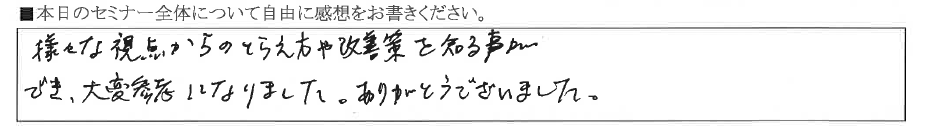 ■本日のセミナー全体について自由に感想をお書きください。
様々な視点からのとらえ方や改善策を知る事が
でき、大変参考になりました。ありがとうございました。